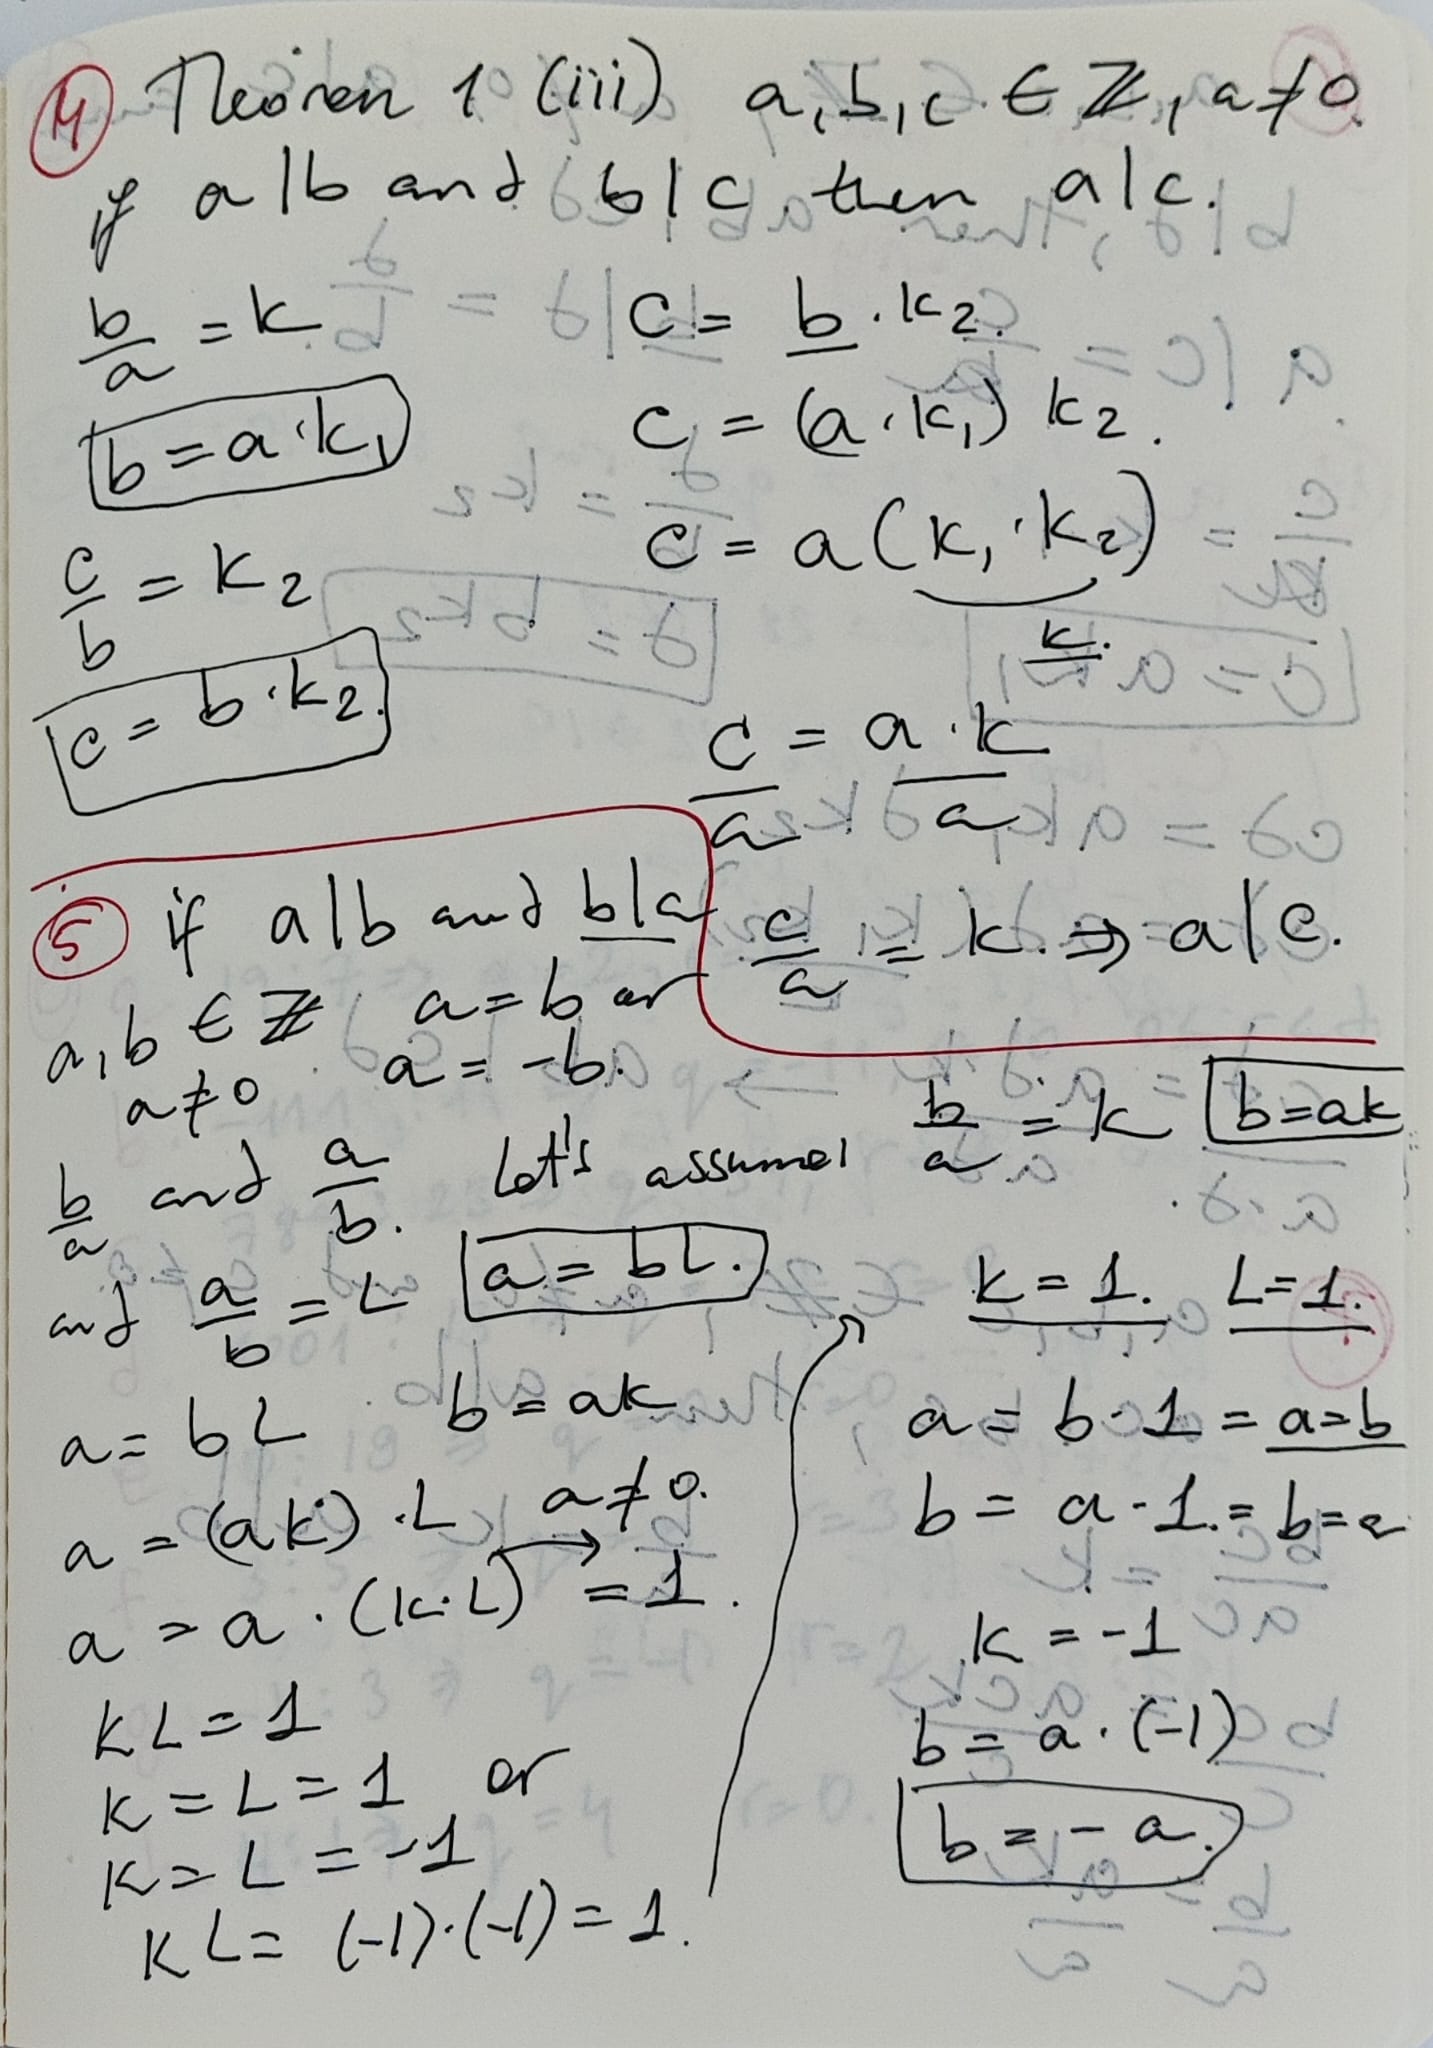 ④ Theorem 1 (iii) a,b,c ∈ ℤ, a≠0.
if a|b and b|c, then a|c.
b/a = k
b = a·k₁
c/b = k₂
c = b·k₂.
c = b·k₂.
c = (a·k₁) k₂.
c = a(k₁·k₂)
k.
c/a = a·k/a
c/a = k. ⇒ a|c.
⑤ if a|b and b|a
a,b ∈ ℤ a = b or
a≠0 a = -b.
b/a and a/b. Let's assume b/a = k b=ak
and a/b = L a = bL.
a = bL b = ak
a = (ak)·L a≠0.
a = a·(k·L) → = 1.
KL = 1
K = L = 1 or
K = L = -1
KL = (-1)·(-1) = 1.
k = 1. L = 1.
a = b·1 = a=b
b = a·1. = b=a
k = -1
b = a·(-1)
b = - a.